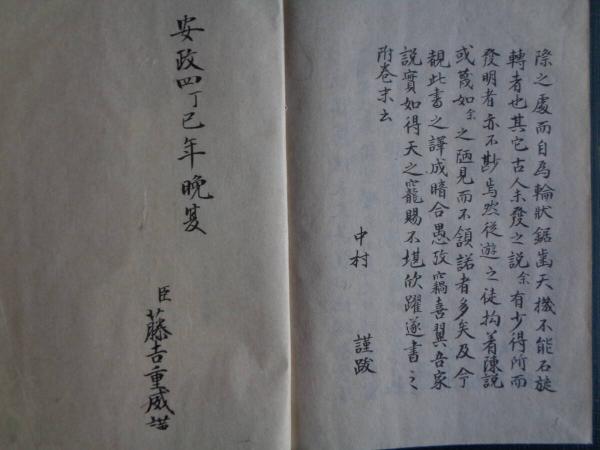 際之處而自為輪狀鋸齒天機不能右旋
轉者也其它古人未發之説余有少得所而
發明者亦不尠焉然從遊之徒拘着陳説
或蔑如余之陋見而不領諾者多矣及今
覩此書之譯成暗合愚攷竊喜翼吾家
説實如得天之寵賜不堪欣躍遂書之
附巻末云
中村 謹跋
安政四丁巳年晩夏
臣 藤吉重威